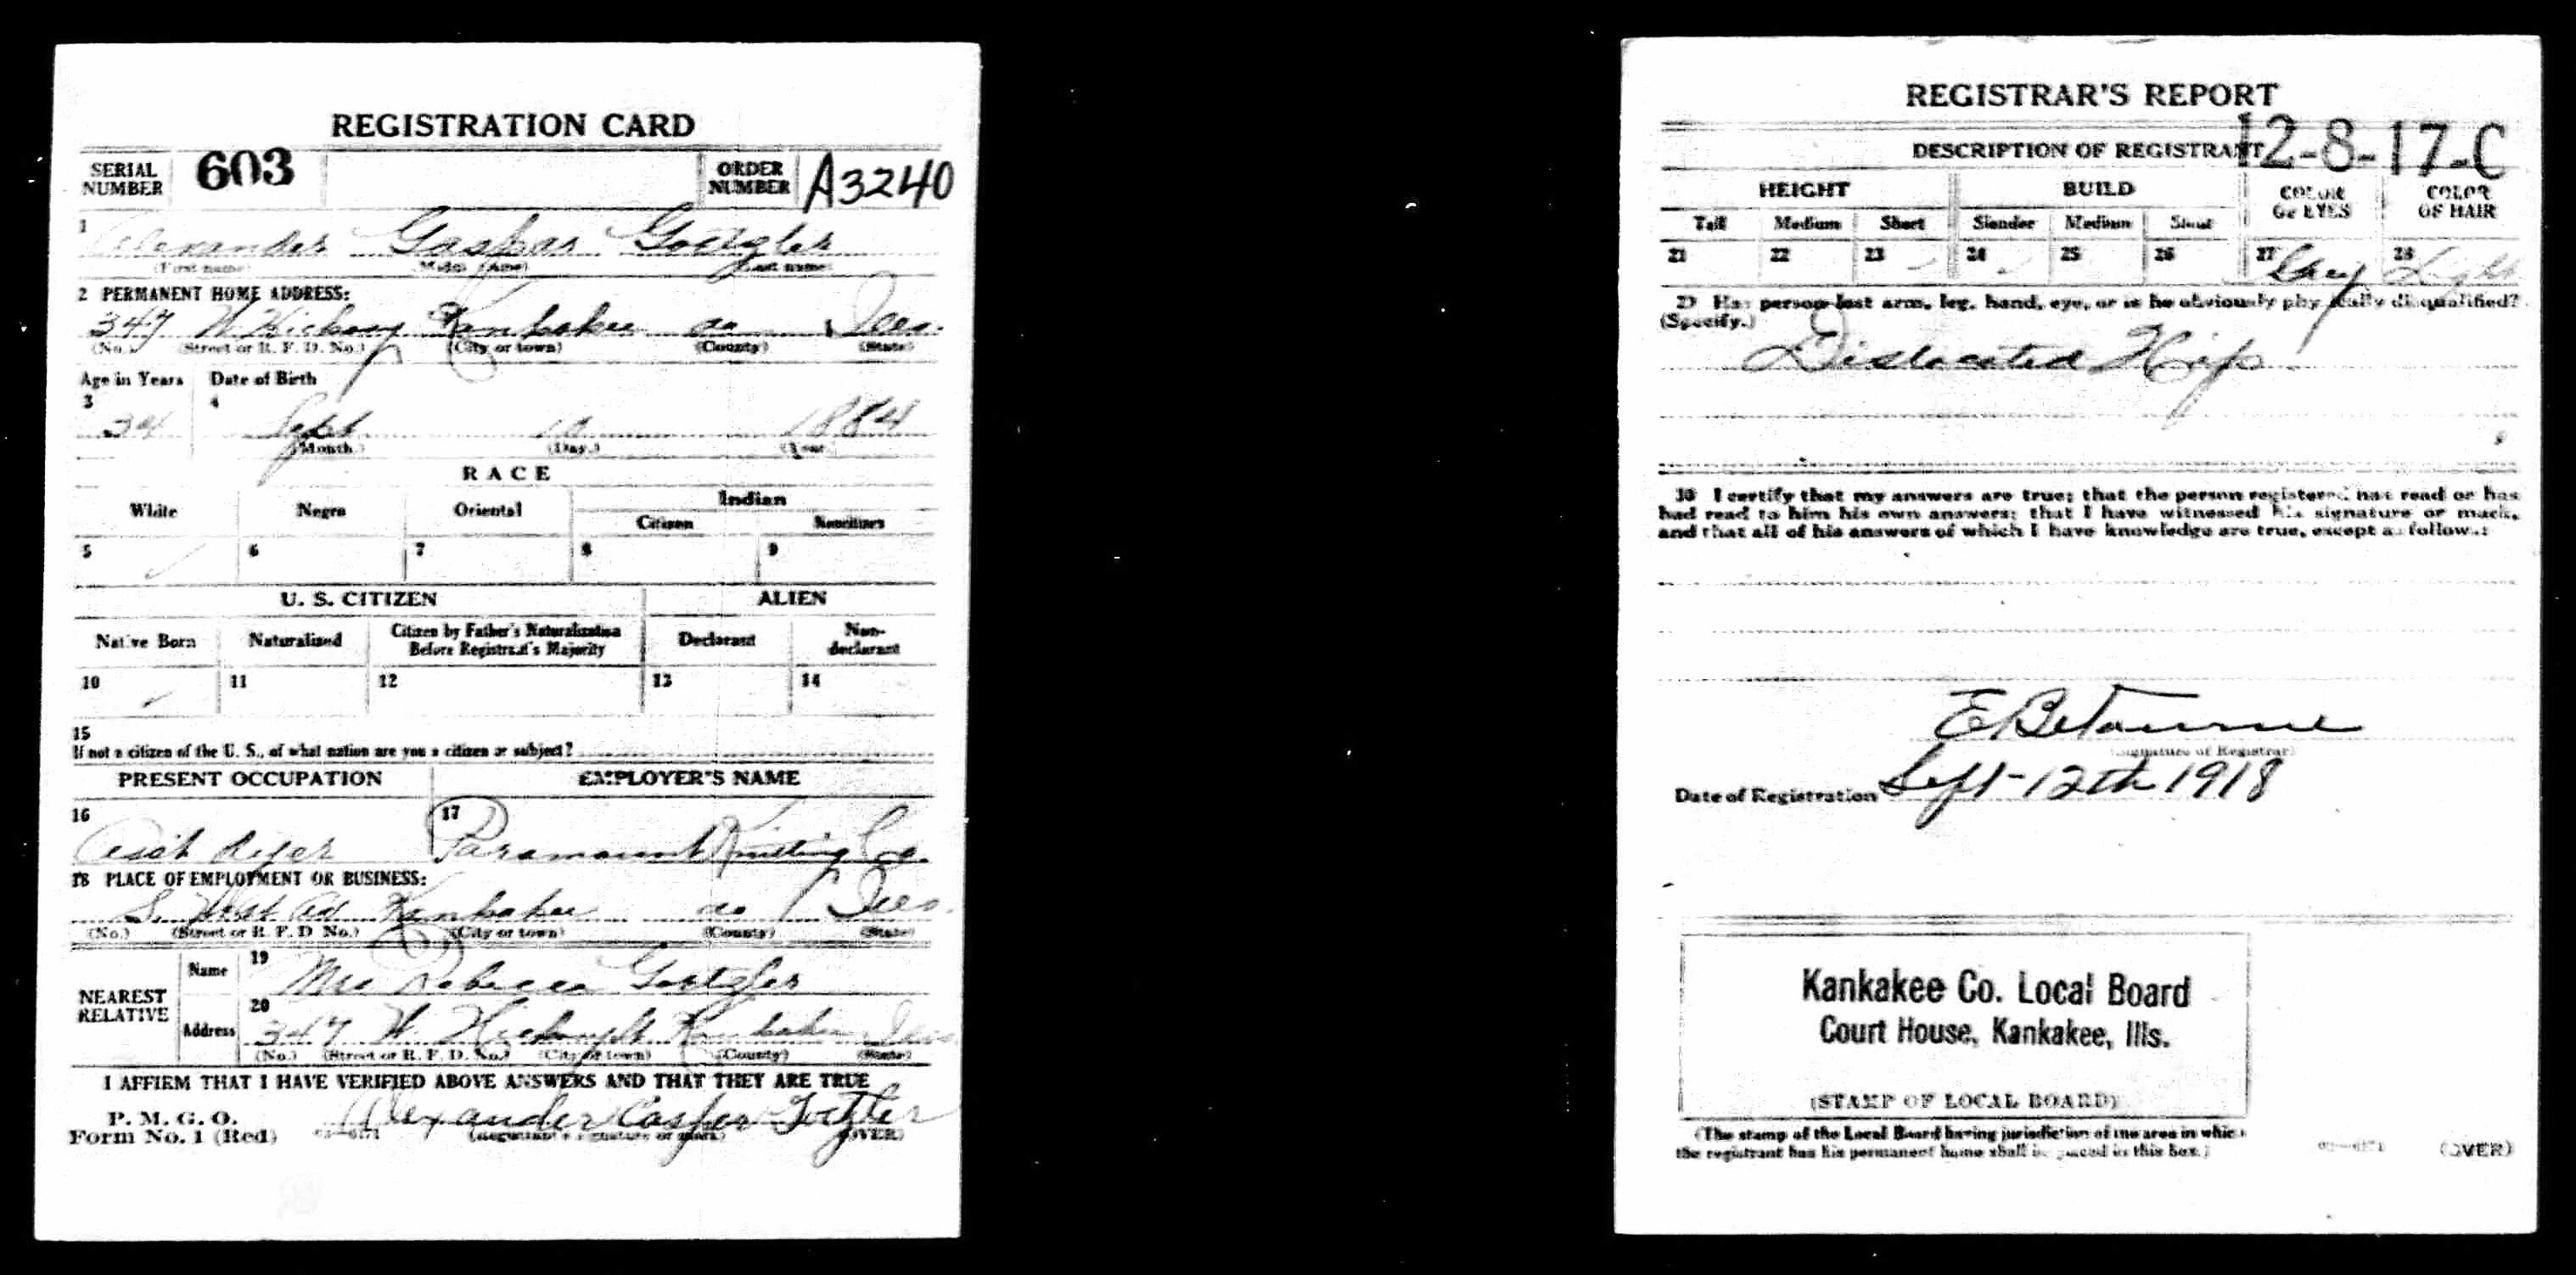 REGISTRATION CARD
SERIAL NUMBER 603 ORDER NUMBER A3240
1 Alexander Gaspar Goetzler
(First name) (Middle name) (Last name)
2 PERMANENT HOME ADDRESS:
347 W. Hickory Kankakee do Ills.
(No.) (Street or R. F. D. No.) (City or town) (County) (State)
Age in Years Date of Birth
3 4
34 Sept 10 1884
(Month.) (Day.) (Year.)
RACE
White Negro Oriental Indian
Citizen Noncitizen
5 ✓ 6 7 8 9
U. S. CITIZEN ALIEN
Native Born Naturalized Citizen by Father's Naturalization Before Registrant's Majority Declarant Non-declarant
10 ✓ 11 12 13 14
15
If not a citizen of the U. S., of what nation are you a citizen or subject?
PRESENT OCCUPATION EMPLOYER'S NAME
16 17
Asst dyer Paramount Knitting Co.
18 PLACE OF EMPLOYMENT OR BUSINESS:
S. West Av Kankakee do Ills.
(No.) (Street or R. F. D No.) (City or town) (County) (State)
NEAREST RELATIVE
Name 19 Mrs Rebecca Goetzler
Address 20 347 W. Hickory St Kankakee Ills
(No.) (Street or R. F. D. No.) (City or town) (County) (State)
I AFFIRM THAT I HAVE VERIFIED ABOVE ANSWERS AND THAT THEY ARE TRUE
P. M. G. O.
Form No. 1 (Red) Alexander Casper Goetzler
(Registrant's signature or mark) (OVER)
REGISTRAR'S REPORT
12-8-17-C
DESCRIPTION OF REGISTRANT
HEIGHT BUILD COLOR OF EYES COLOR OF HAIR
Tall Medium Short Slender Medium Stout
21 22 23 ✓ 24 ✓ 25 26 27 Grey 28 Light
29 Has person lost arm, leg, hand, eye, or is he obviously physically disqualified?
(Specify.)
Dislocated Hip
30 I certify that my answers are true; that the person registered has read or has
had read to him his own answers; that I have witnessed his signature or mark,
and that all of his answers of which I have knowledge are true, except as follows:
E Betourne
(Signature of Registrar)
Date of Registration Sept-12th 1918
Kankakee Co. Local Board
Court House, Kankakee, Ills.
(STAMP OF LOCAL BOARD)
(The stamp of the Local Board having jurisdiction of the area in which
the registrant has his permanent home shall be placed in this box.)
(OVER)